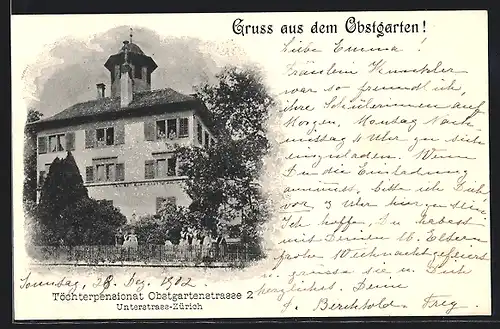 Gruss aus dem Obstgarten!
Liebe Emma!
Fräulein Kunkler
war so freundlich,
ihre Schülerinnen auf
Morgen, Montag Nach-
mittag 4 Uhr zu sich
einzuladen. Wenn
Du die Einladung
annimmst, bitte ich Dich
vor 3 Uhr hier zu sein.
Ich hoffe, Du habest
mit Deinen Eltern
frohe Weihnacht gefeiert
u. grüsse sie u. Dich
herzlichst. Deine
J. Berchtold-Frey.
Sonntag, 28. Dez. 1902
Töchterpensionat Obstgartenstrasse 2
Unterstrass-Zürich